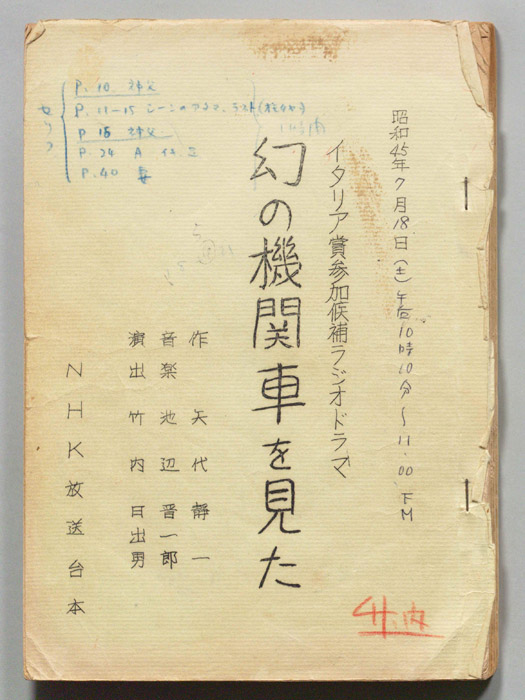 昭和45年7月18日(土)午后10時10分〜11.00 FM
イタリア賞参加候補ラジオドラマ
幻の機関車を見た
作 矢代静一
音楽 池辺晋一郎
演出 竹内日出男
NHK放送台本
セリフ
P.10 神父
P.11-15 シーンの
P.15 神父
P.24 A
P.40 妻
竹内